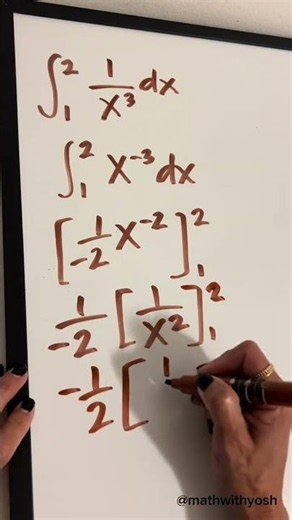 ∫₁² 1/x³ dx
∫₁² x⁻³ dx
[1/-2 x⁻²]₁²
1/-2 [1/x²]₁²
-1/2 [1
@mathwithyosh